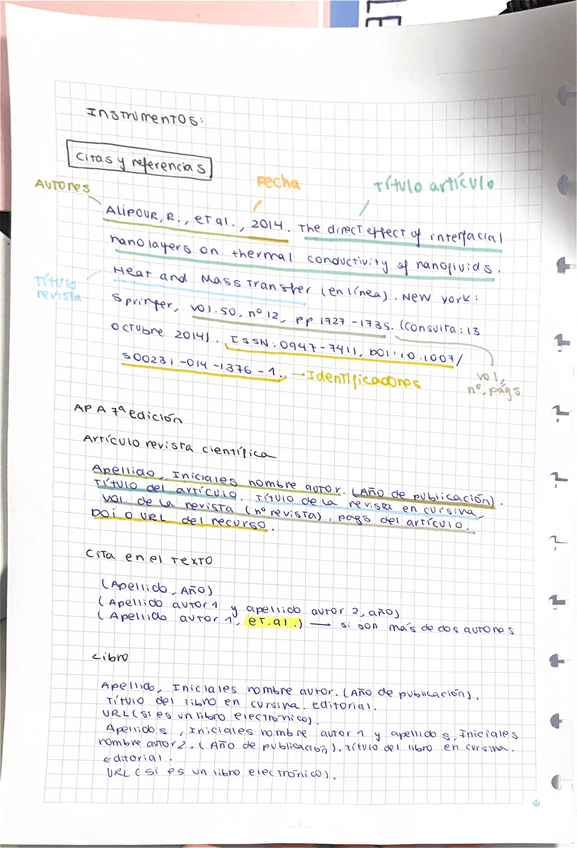 INSTRUMENTOS:
Citas y referencias
AUTORES
Fecha
Título artículo
ALIPOUR, R., et al., 2014. The direct effect of interfacial
nanolayers on thermal conductivity of nanofluids.
Título
revista
Heat and Mass Transfer (en línea). New York:
Springer, vol. 50, nº 12, pp 1727-1735. (Consulta: 13
octubre 2014). ISSN: 0947-7411, DOI: 10.1007/
S00231-014-1376-1. → Identificadores
vol,
nº, págs
APA 7ª edición
Artículo revista científica
Apellido, Iniciales nombre autor. (Año de publicación).
Título del artículo. Título de la revista en cursiva,
vol de la revista (nº revista), pags del artículo.
DOI o URL del recurso.
Cita en el texto
(Apellido, Año)
(Apellido autor 1 y apellido autor 2, año)
(Apellido autor 1, et.al.) → si son más de dos autores
Libro
Apellido, Iniciales nombre autor. (Año de publicación).
Título del libro en cursiva. editorial.
URL (si es un libro electrónico).
Apellido s, Iniciales nombre autor 1 y apellido s, Iniciales
nombre autor 2. (Año de publicación). Título del libro en cursiva.
editorial.
URL (si es un libro electrónico).